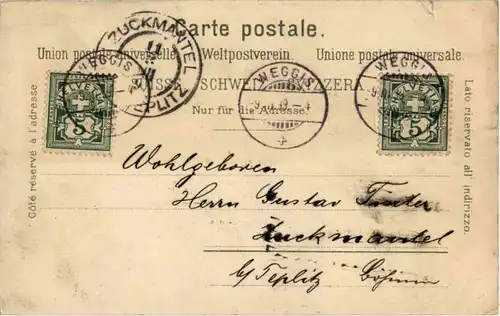 Carte postale.
Union postale universelle. Weltpostverein. Unione postale universale.
SUISSE. SCHWEIZ. SVIZZERA.
Nur für die Adresse.
Côté réservé à l'adresse.
Lato riservato all' indirizzo.
ZUCKMANTEL
TEPLITZ
11
WEGGIS
WEGGIS
WEGGIS
HELVETIA
5
HELVETIA
5
Wohlgeboren
Herrn Gustav
Zuckmantel
b/ Teplitz Böhmen